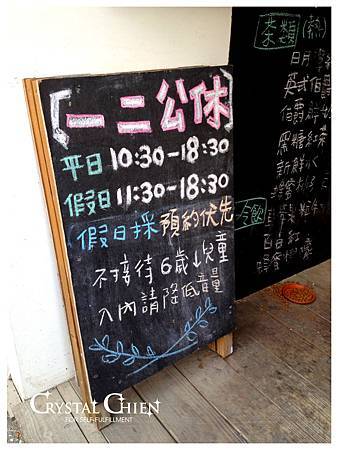 [一二公休]
平日10:30-18:30
假日11:30-18:30
假日採預約优先
不接待6歲↓兒童
入內請降低音量
茶類(熱)
日月
英式伯爵
伯爵
黑糖紅茶
新鮮
冷飲
CRYSTAL CHIEN
FOR SELF-FULFILLMENT